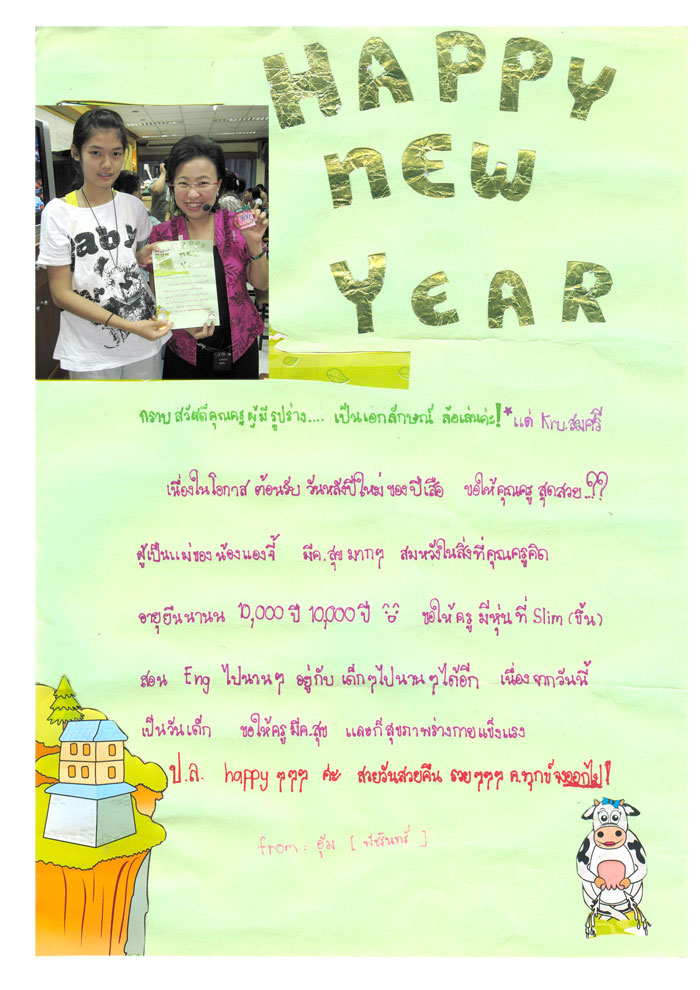 HAPPY
NEW
YEAR
กราบสวัสดีคุณครูผู้มีรูปร่าง.... เป็นเอกลักษณ์ ล้อเล่นค่ะ!* แด่ Kru.สมศรี
เนื่องในโอกาส ต้อนรับ วันหลังปีใหม่ ของปีเสือ ขอให้คุณครู สุดสวย..??
ผู้เป็นแม่ของน้องแองจี้ มีค.สุข มากๆ สมหวังในสิ่งที่คุณครูคิด
อายุยืนนานน 10,000 ปี 10,000 ปี ขอให้ครู มีหุ่นที่ Slim (ขึ้น)
สอน Eng ไปนานๆ อยู่กับ เด็กๆไปนานๆได้อีก เนื่องจากวันนี้
เป็นวันเด็ก ขอให้ครูมีค.สุข และก็สุขภาพร่างกายแข็งแรง
ป.ล. happy ๆๆๆ ค่ะ สวยวันสวยคืน รวยๆๆๆ ค.ทุกข์จงออกไป!
from : ยุ้ม [ พัชรินทร์ ]